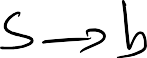 S → b